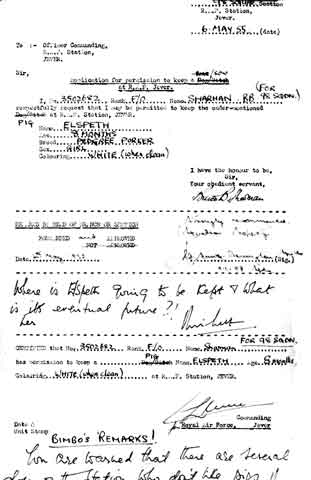 98 SQDN Squadron
R.A.F. Station,
Jever.
6 MAY 55 (date)
To :- Officer Commanding,
R.A.F. Station,
JEVER.
Sir,
Application for permission to keep a
at R.A.F. Jever.
(FOR 98 SQDN.)
I, No. 3502683 Rank. F/O Name. SHARMAN BB
respectfully request that I may be permitted to keep the under-mentioned
at R.A.F. Station, JEVER.
PIG
Name. ELSPETH
Age. 3 MONTHS
Breed. PEDIGREE PORKER
Sex. GIRL
Colouring. WHITE (when clean)
I have the honour to be,
Sir,
Your obedient servant,
Strongly recommended.
Squadron
RECOMMENDED and APPROVED
NOT APPROVED
Date.
Where is Elspeth going to be kept & what
is its eventual future?!
her
FOR 98 SQDN.
CERTIFIED that No. 3502683 Rank. F/O Name. SHARMAN
PIG
has permission to keep a Name. ELSPETH Age. 3 months
Colouring. WHITE (when clean) at R.A.F. Station, JEVER.
Commanding
Royal Air Force, Jever
Date &
Unit Stamp
BIMBO'S REMARKS!
You are warned that there are several
dogs on the Station who don't like pigs!!